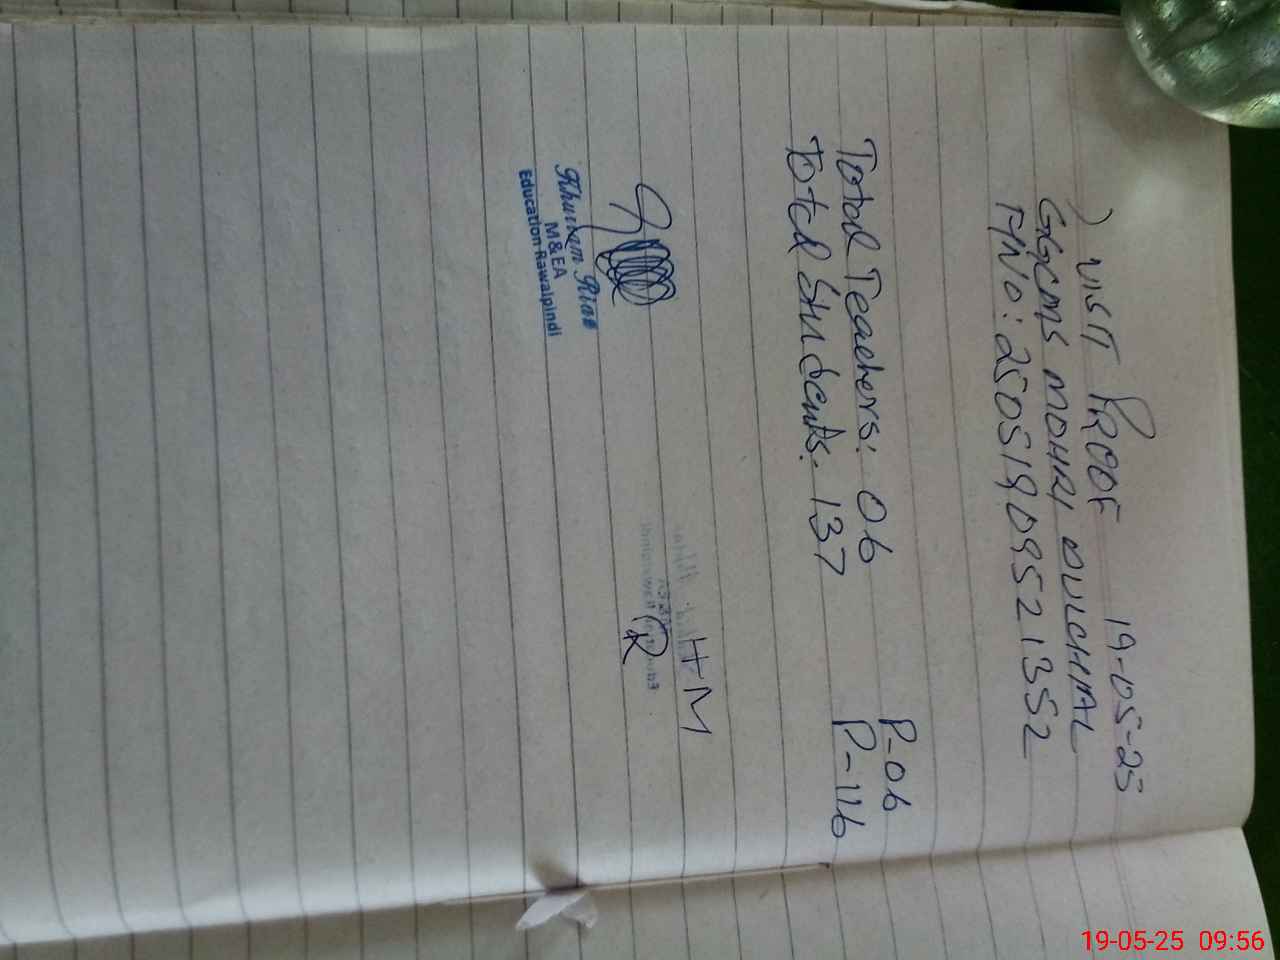 VISIT PROOF 19-05-25
GGCMS MOHRI DULCHIAL
F/No: 250519095213S2
Total Teachers: 06 P-06
Total Students: 137 P-116
H M
Khurram Riaz
M & EA
Education Rawalpindi
19-05-25 09:56